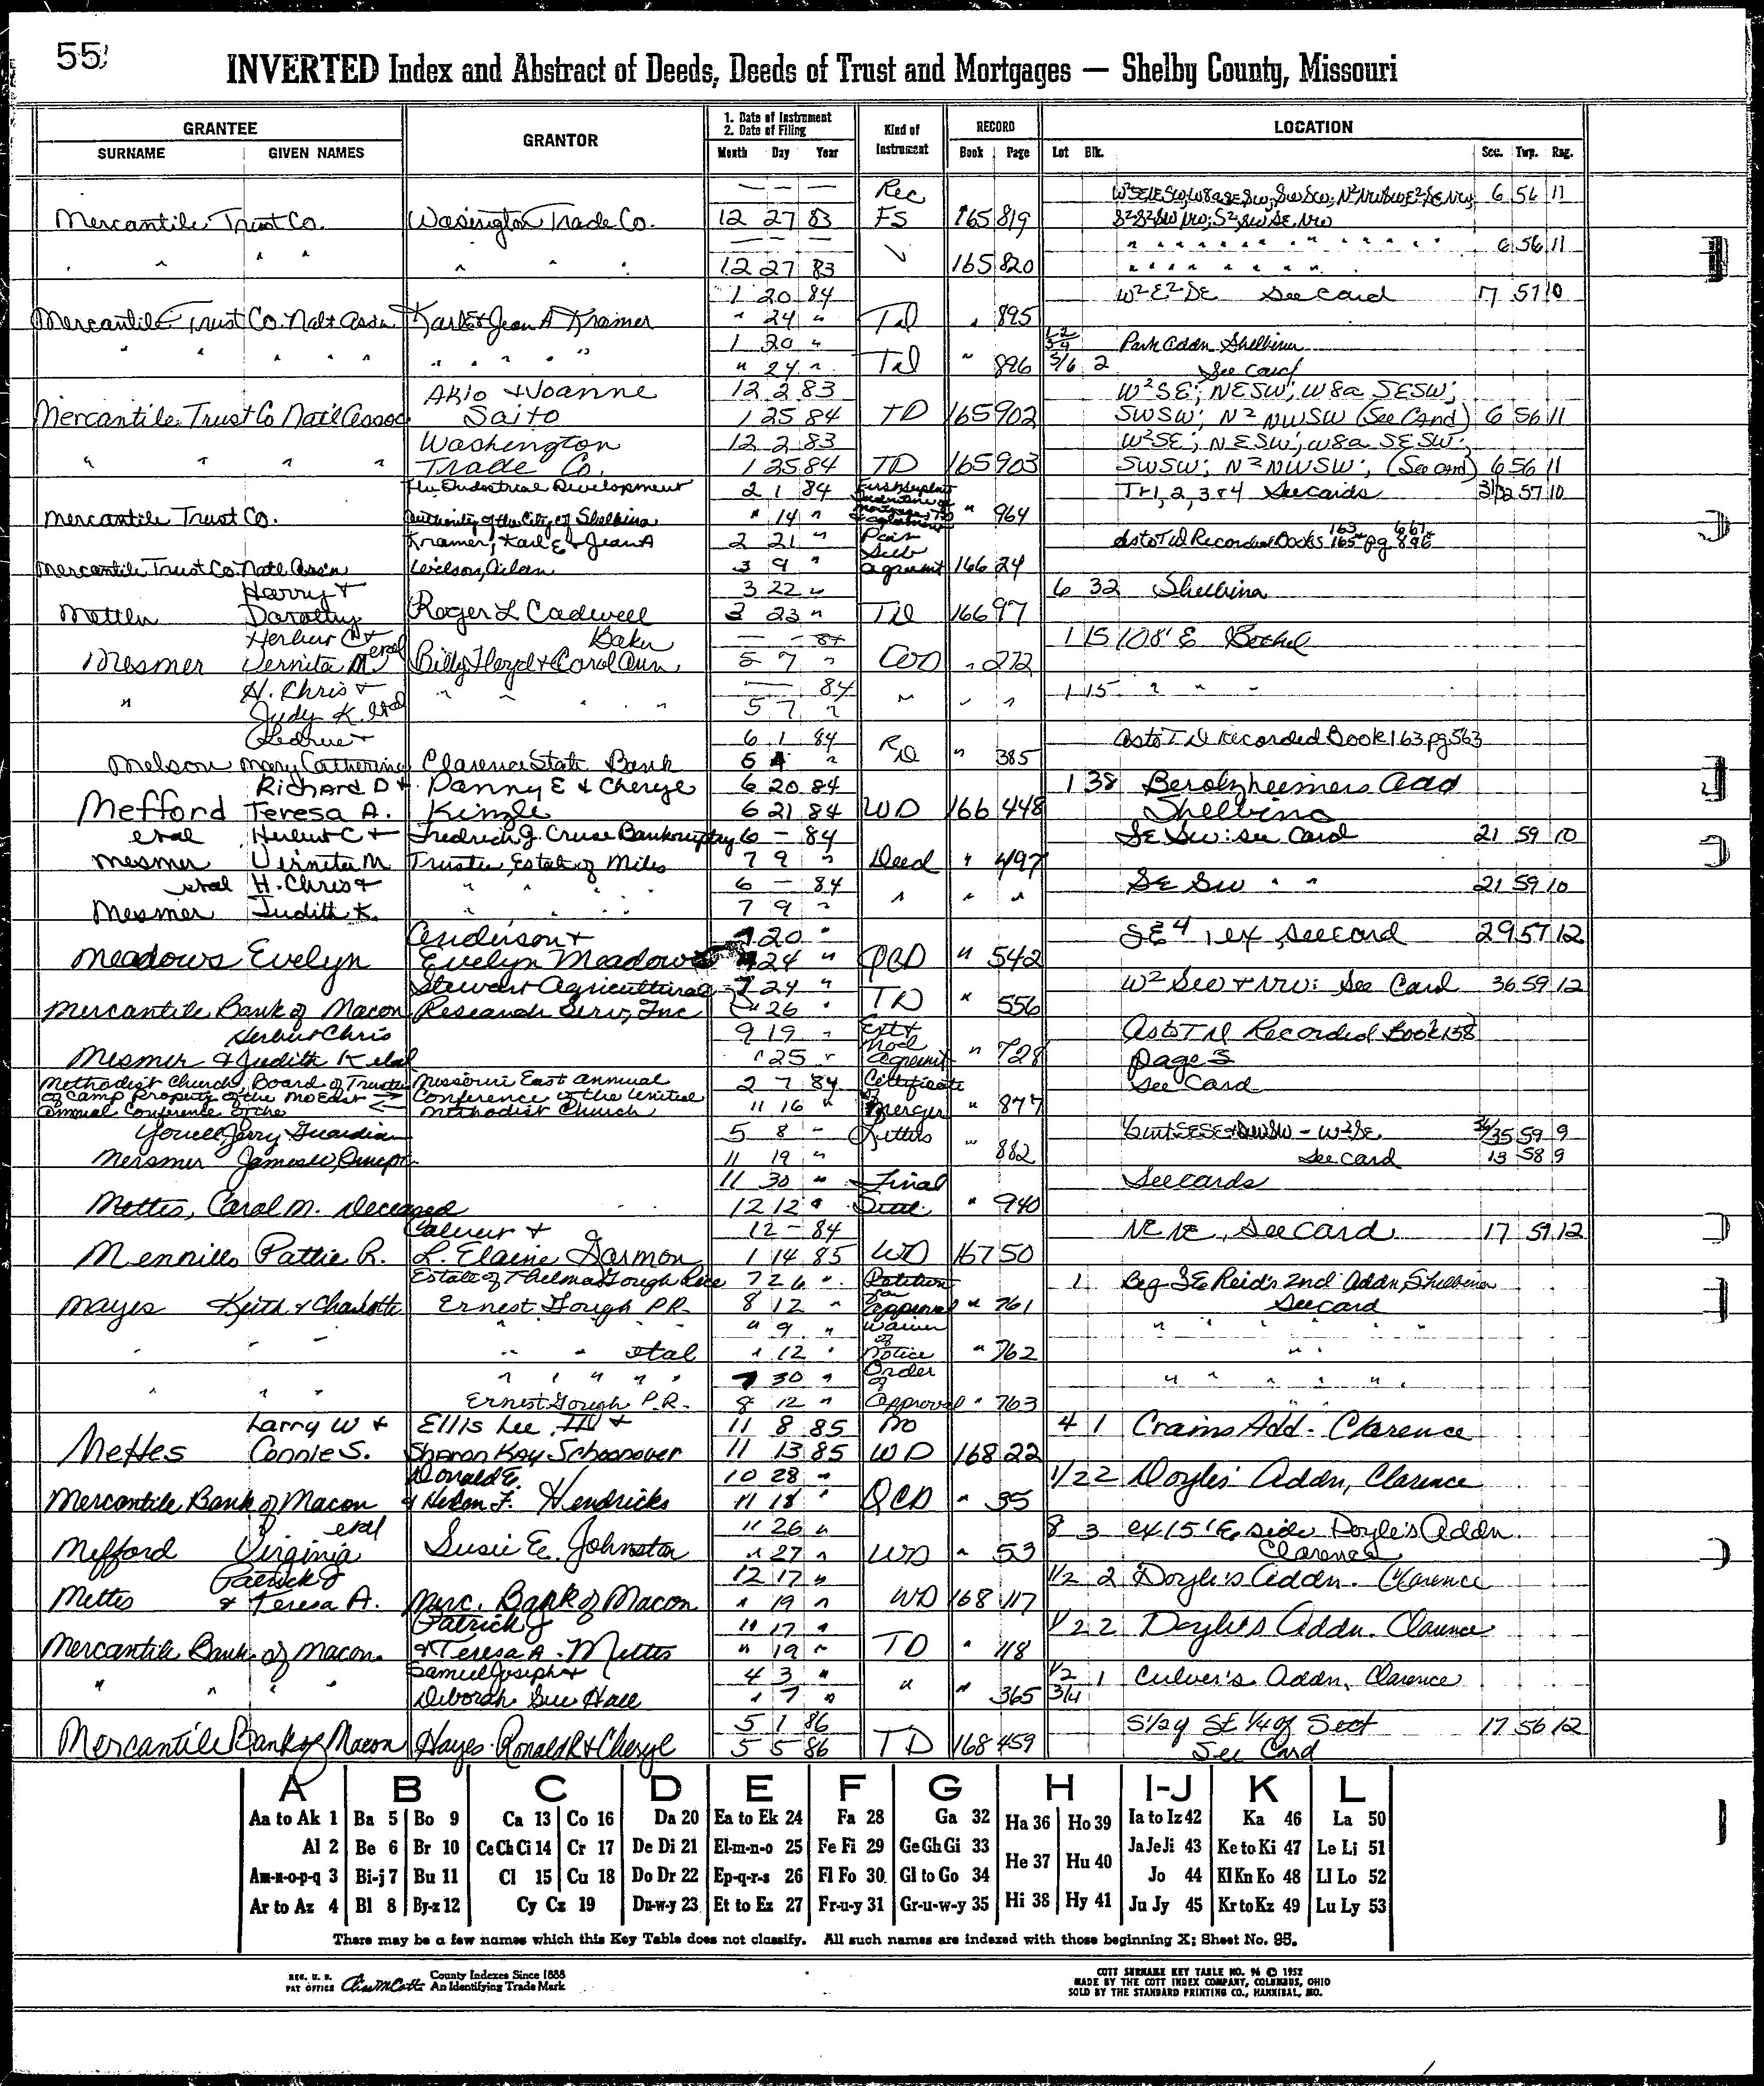 55
INVERTED Index and Abstract of Deeds, Deeds of Trust and Mortgages — Shelby County, Missouri
GRANTEE GRANTOR 1. Date of Instrument 2. Date of Filing Kind of Instrument RECORD LOCATION
SURNAME GIVEN NAMES Month Day Year Book Page Lot Blk. Sec. Twp. Rag.
— — — Rec 6 56 11
Mercantile Trust Co. Wasington Trade Co. 12 27 83 FS 165 819
— — — " " " " 6 56 11
" " " " " " 12 27 83 165 820 " " " "
1 20 84 W2 E2 SE See Card 17 57 10
Mercantile Trust Co. Natl Assn Karl E & Jean A Kramer " 24 " TD " 895
1 20 " Park Addn Shelbina
" " " " " " " " " " 24 " TD " 896 5/6 2 See Card
Akio & Joanne 12 2 83 W2SE; NESW; W8a SESW;
Mercantile Trust Co Nat'l Assoc Saito 1 25 84 TD 165 902 SWSW; N2 NWSW (See Card) 6 56 11
Washington 12 2 83 W2SE; NESW; W8a SESW;
" " " " Trade Co. 1 25 84 TD 165 903 SWSW; N2NWSW; (See Card) 6 56 11
The Industrial Development 2 1 84 Tr 1, 2, 3 & 4 See Cards 31/32 57 10
Mercantile Trust Co. Authority of the City of Shelbina " 14 " " 964
Kramer, Karl E & Jean A 2 21 " As to TD Recorded Books 163 165 pg 667 896
Mercantile Trust Co. Natl Assn Wilson, 3 9 " Sub Agreemt 166 24
Harry & 3 22 " 6 32 Shelbina
Mettler Dorothy Roger L Cadwell 3 23 " TD 166 97
Herbert C & Baker — — 84 1 15 108' E Bethel
Mesmer Vernita M etal Billy Floyd & Carol Ann 5 7 " WD " 272
H. Chris & — 84 1 15 " " "
" Judy K. etal " " " " 5 7 " " " "
6 1 84 As to TD Recorded Book 163 pg 563
Melson Mary Catherine Clarence State Bank 6 4 " RD " 385
Richard D & Danny E & Cheryl 6 20 84 1 38 Berolzheimers Add
Mefford Teresa A. Kinzle 6 21 84 WD 166 448 Shelbina
etal Herbert C & Fredrich J. Cruse Bankruptcy 6 — 84 SE SW: See Card 21 59 10
Mesmer Vernita M Trustee, Estate of Miles 7 9 " Deed " 497
etal H. Chris & " " " " 6 — 84 SE SW " " 21 59 10
Mesmer Judith K. " " " " 7 9 " " " "
Anderson & 7 20 " SE4 1 ex, See card 29 57 12
Meadows Evelyn Evelyn Meadows 24 " QCD " 542
Stewart Agricultural 7 24 " W2 SW & NW: See Card 36 59 12
Mercantile Bank of Macon Research Serv, Inc " 26 " TD " 556
Herbert Chris 9 19 " Ext & As to TD Recorded Book 158
Mesmer & Judith K etal " 25 " Mod Agreemt " 728 page 3
Methodist Church, Board of Trustees Missouri East Annual 2 7 84 Certificate See Card
of Camp Property of the Mo East Conference of the United of
Annual Conference of the Methodist Church 11 16 " Merger " 877
Youell, Jerry Guardian 5 8 " Letters 34/35 59 9
Mersmer James W, 11 19 " " 882 See Card 13 58 9
11 30 " Final See cards
Mettes, Carol M. Deceased 12 12 " " 940
Calvert & 12 — 84 NE NE, See Card 17 59 12
Mennille Pattie R. L. Elaine Garmon 1 14 85 WD 167 50
Estate of Thelma Gough Rice 7 26 " Petition 1 Beg SE Reid's 2nd Addn, Shelbina
Mayes Keith & Charlotte Ernest Gough P.R. 8 12 " for Approval " 761 See card
" 9 " Waiver " " " "
" " " " etal " 12 " of Notice " 762 " "
" " " " " 7 30 " Order of " " " " " "
" " " Ernest Gough P.R. 8 12 " Approval " 763
Larry W & Ellis Lee, III & 11 8 85 Mo 4 1 Crains Add. Clarence
Mettes Connie S. Sharon Kay Schoonover 11 13 85 WD 168 22
Donald E. 10 28 " 1/2 2 Doyles' Addn, Clarence
Mercantile Bank of Macon & Helen F. Hendricks 11 18 " QCD " 35
etal 11 26 " 8 3 ex 15' E side Doyle's Addn.
Mefford Virginia Susie E. Johnston " 27 " WD " 53 Clarence
Patrick J 12 17 " 1/2 2 Doyle's Addn. Clarence
Mettes & Teresa A. Merc. Bank of Macon " 19 " WD 168 117
Patrick J 11 17 " 1/2 2 Doyle's Addn. Clarence
Mercantile Bank of Macon. & Teresa A. Mettes " 19 " TD " 118
Samuel Joseph & 4 3 " 1/2 1 Culver's Addn, Clarence
" " " " Deborah Sue Hall " 7 " " " 365 3/4
5 1 86 S1/2 of SE 1/4 of Sect 17 56 12
Mercantile Bank of Macon Hayes Ronald R & Cheryl 5 5 86 TD 168 459 See Card
A B C D E F G H I-J K L
Aa to Ak 1 Ba 5 Bo 9 Ca 13 Co 16 Da 20 Ea to Ek 24 Fa 28 Ga 32 Ha 36 Ho 39 Ia to Iz 42 Ka 46 La 50
Al 2 Be 6 Br 10 Ce Ch Ci 14 Cr 17 De Di 21 El-m-n-o 25 Fe Fi 29 Ge Gh Gi 33 He 37 Hu 40 Ja Je Ji 43 Ke to Ki 47 Le Li 51
Am-n-o-p-q 3 Bi-j 7 Bu 11 Cl 15 Cu 18 Do Dr 22 Ep-q-r-s 26 Fl Fo 30 Gl to Go 34 Jo 44 Kl Kn Ko 48 Ll Lo 52
Ar to Az 4 Bl 8 By-z 12 Cy Cz 19 Du-w-y 23 Et to Ez 27 Fr-u-y 31 Gr-u-w-y 35 Hi 38 Hy 41 Ju Jy 45 Kr to Kz 49 Lu Ly 53
There may be a few names which this Key Table does not classify. All such names are indexed with those beginning X; Sheet No. 95.
REG. U. S. PAT OFFICE County Indexes Since 1888 An Identifying Trade Mark
COTT SURNAME KEY TABLE NO. 96 © 1952
MADE BY THE COTT INDEX COMPANY, COLUMBUS, OHIO
SOLD BY THE STANDARD PRINTING CO., HANNIBAL, MO.